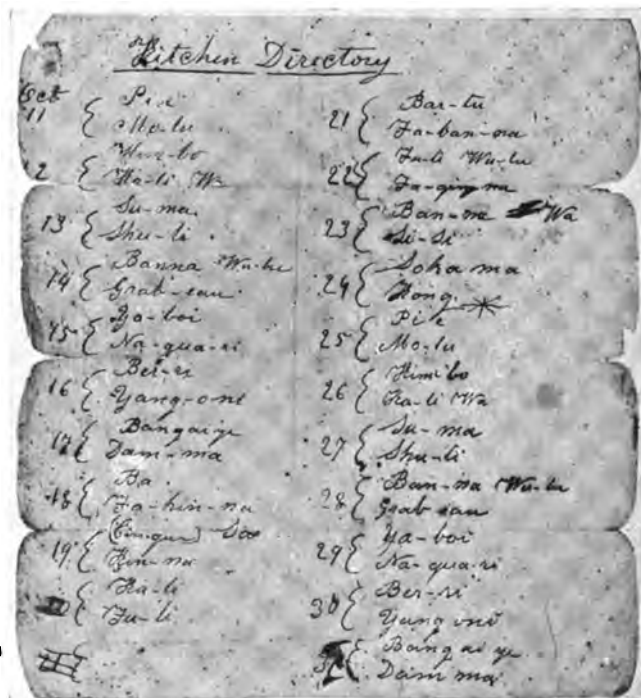 Kitchen Directory
Oct
11 { Pi-e
Mo-lu
12 { bo
Ka-li Wa
13 { Su-ma
Shu-li
14 { Banna Wu-lu
Grab-eau
15 { Ya-boi
Na-qua-ri
16 { Ber-ri
Yang-oni
17 { Bangaiye
Dam-ma
18 { Ba
Fa-hin-na
19 { (Cinque)
Kin-na
{ Ka-li
Fu-li
21 { Bar-tu
Fa-ban-na
22 { Fu-li Wu-lu
Fa-gin-na
23 { Ban-na Wa
Si-si
24 { Soka ma
Kong
25 { Pi e
Mo-lu
26 { Kimibo
Ka-li Wa
27 { Su-ma
Shu-li
28 { Ban-na Wu-lu
Grab eau
29 { Ya-boi
Na-qua-ri
30 { Ber-ri
Yang oni
{ Bangai ye
Dam ma